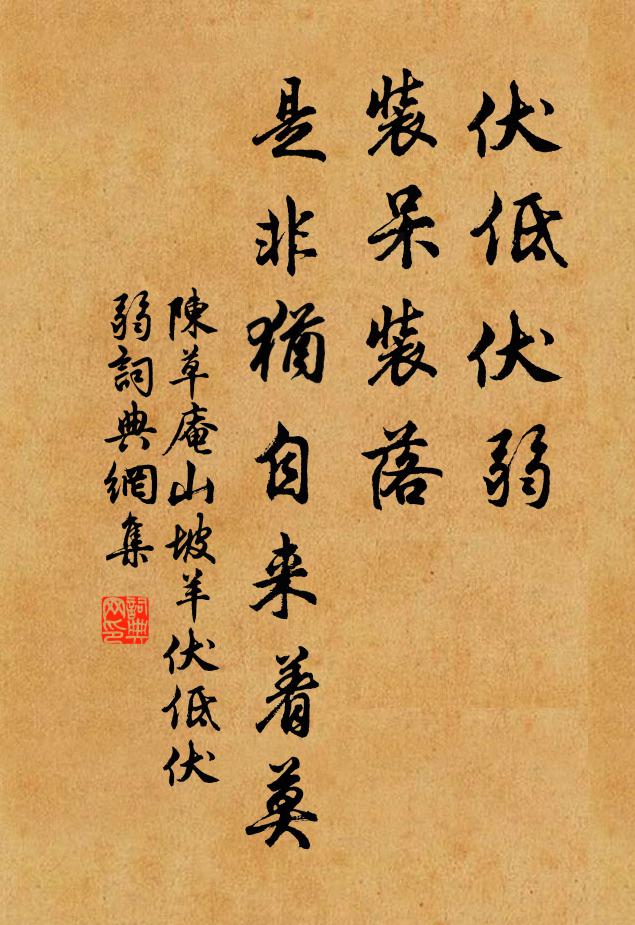 伏低伏弱
裝呆裝落
是非猶自来着莫
陳草庵山坡羊伏低伏
弱詞典網集
詞典网印